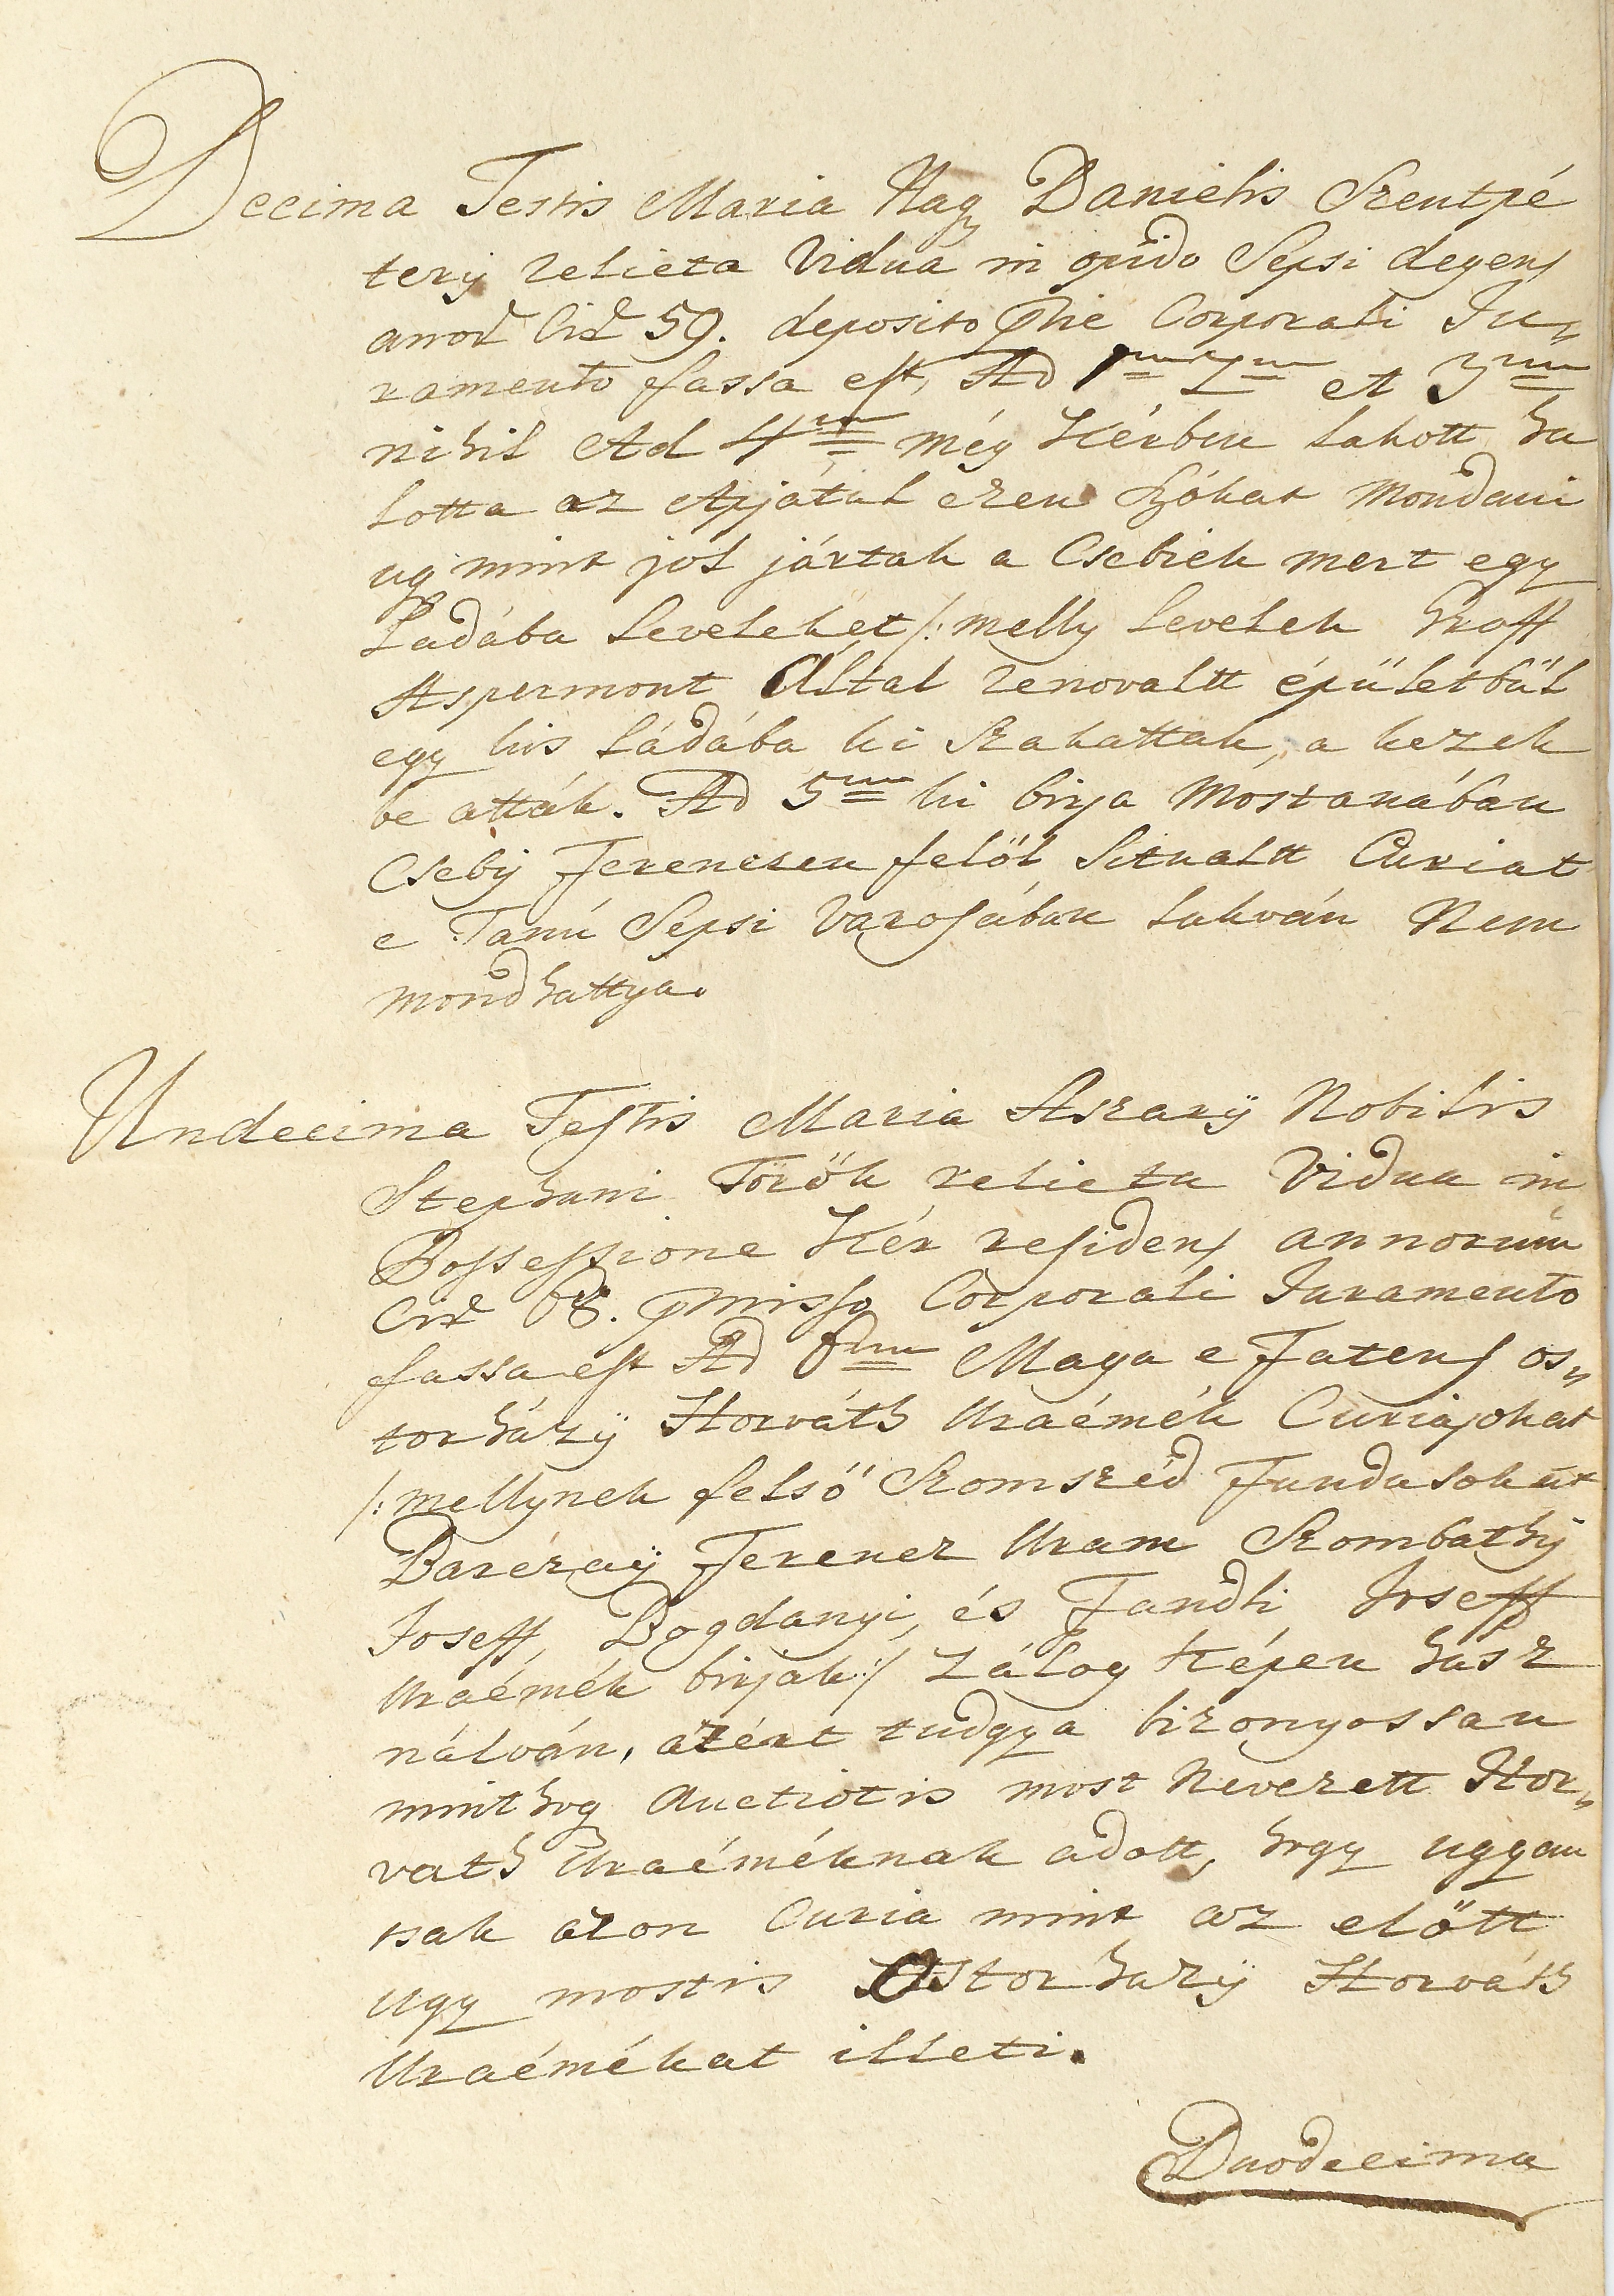 Decima Testis Maria Nagy Danielis Szentpé
terÿ relicta Vidua in opido Sepsi degens
annor Cir 59. deposito Corporali Ju„
ramento fassa est, Ad 1um 2um et 3um
nihil Ad 4um még Kérben lakott ha
lotta az Apjátul ezen szókat mondani
ugmint jól jártak a Csebiek mert egy
Ladába leveleket /: melly levelek Groff
Aspermont Által renovaltt épületbül
egy kis ládába ki szakattak, a kezek
be atták. Ad 5um ki birja Mostanában
Csebÿ Ferenczen felöl Situaltt Curiat
e Tanú Sepsi Varosában lakván Nem
mondhattya.
Undecima Testis Maria Aszarÿ Nobilis
Stephani Török relicta Vidua in
Possessione Kér residens annorum
Cir 68. pmisso Corporali Juramento
fassa est Ad Maga e Fatens os„
torházÿ Horváth Uraémék Curiajokat
/: mellynek felsö Szomszéd Fundusokat
Barczaÿ Ferencz Uram Szombathÿ
Joseff, Bogdanyi, és Fandli Joseff
Uraémék birják :/ Zálog Képen hasz
nálván, azért tudgya bizonyossan
minthog Auctiót is most Nevezett Hor„
vath Uraéméknak adott, hogy ugyan
tsak azon Curia mint az elött
ugy mostis Ostorhazÿ Horváth
Uraémékat illeti.
Duodecima